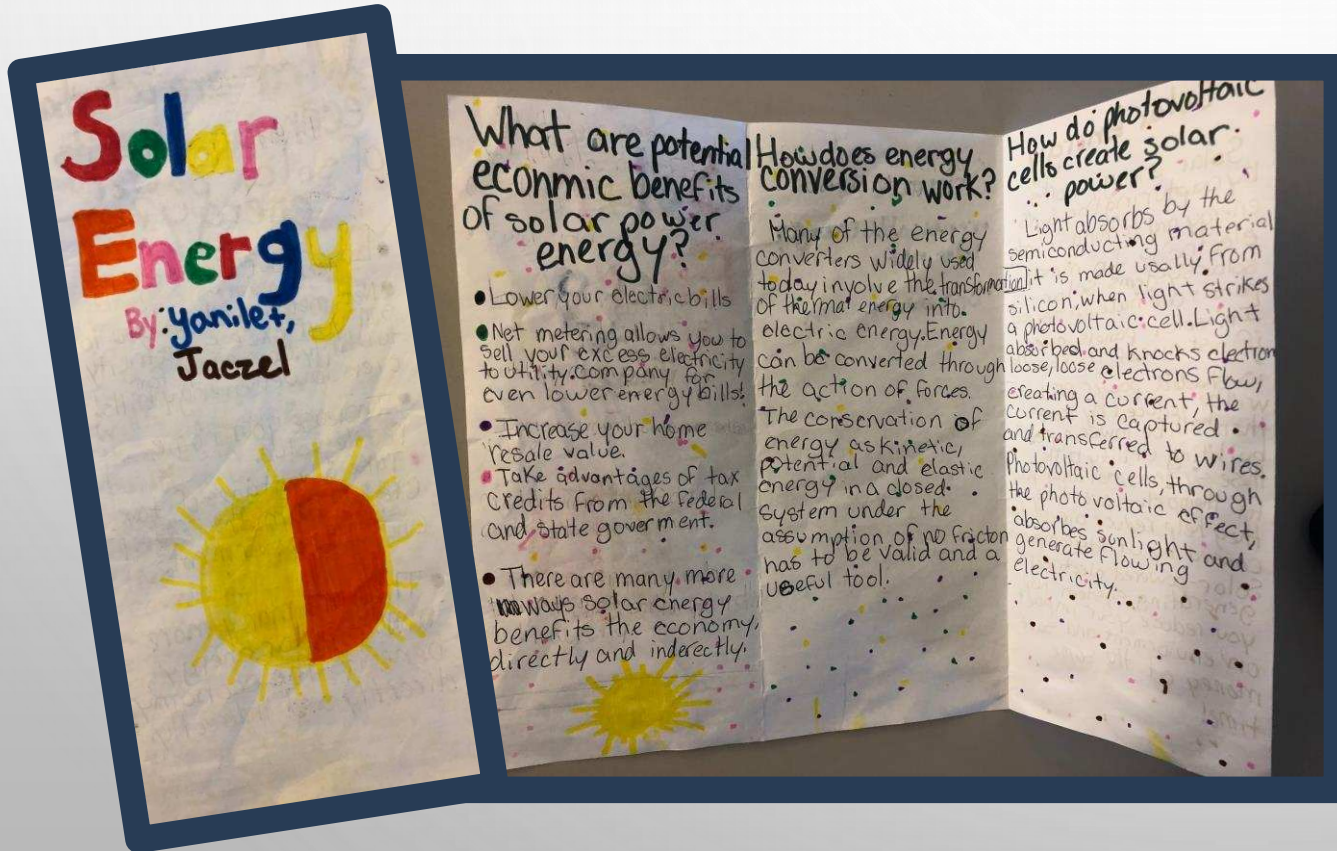 Solar
Energy
By: Yanilet,
Jaczel
What are potential
econmic benefits
of solar power
energy?
• Lower your electric bills
• Net metering allows you to
sell your excess electricity
to utility company for
even lower energy bills!
• Increase your home
resale value.
• Take advantages of tax
credits from the federal
and state goverment.
• There are many more
ways solar energy
benefits the economy,
directly and inderectly.
How does energy
conversion work?
Many of the energy
converters widely used
today involve the transformation
of thermal energy into
electric energy. Energy
can be converted through
the action of forces.
The conservation of
energy as kinetic,
potential and elastic
energy in a closed
system under the
assumption of no fricton
has to be valid and a
useful tool.
How do photovoltaic
cells create solar
power?
Light absorbs by the
semiconducting material
it is made usally from
silicon. when light strikes
a photovoltaic cell. Light
absorbed and knocks electron
loose, loose electrons flow,
creating a current, the
current is captured
and transferred to wires.
Photovoltaic cells, through
the photo voltaic effect,
absorbes sunlight and
generate flowing
electricity.